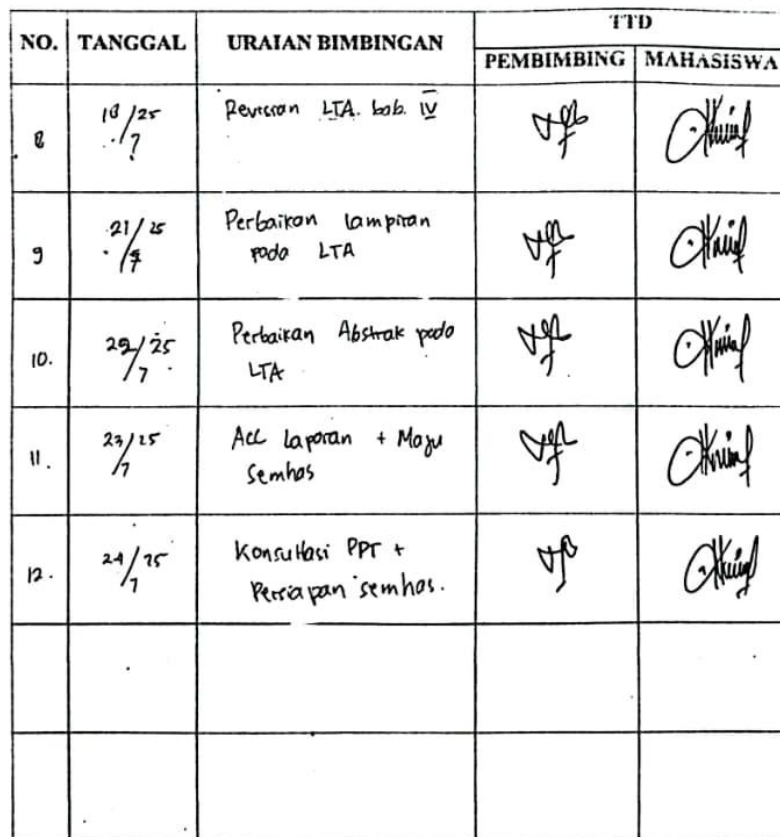 NO. TANGGAL URAIAN BIMBINGAN TTD
PEMBIMBING MAHASISWA
8 18/25 7 Revisian LTA. bab. IV
9 21/25 7 Perbaikan lampiran
pada LTA
10. 22/25 7 Perbaikan Abstrak pada
LTA
11. 23/25 7 Acc Laporan + Maju
Semhas
12. 24/25 7 Konsultasi PPT +
Persiapan semhas.